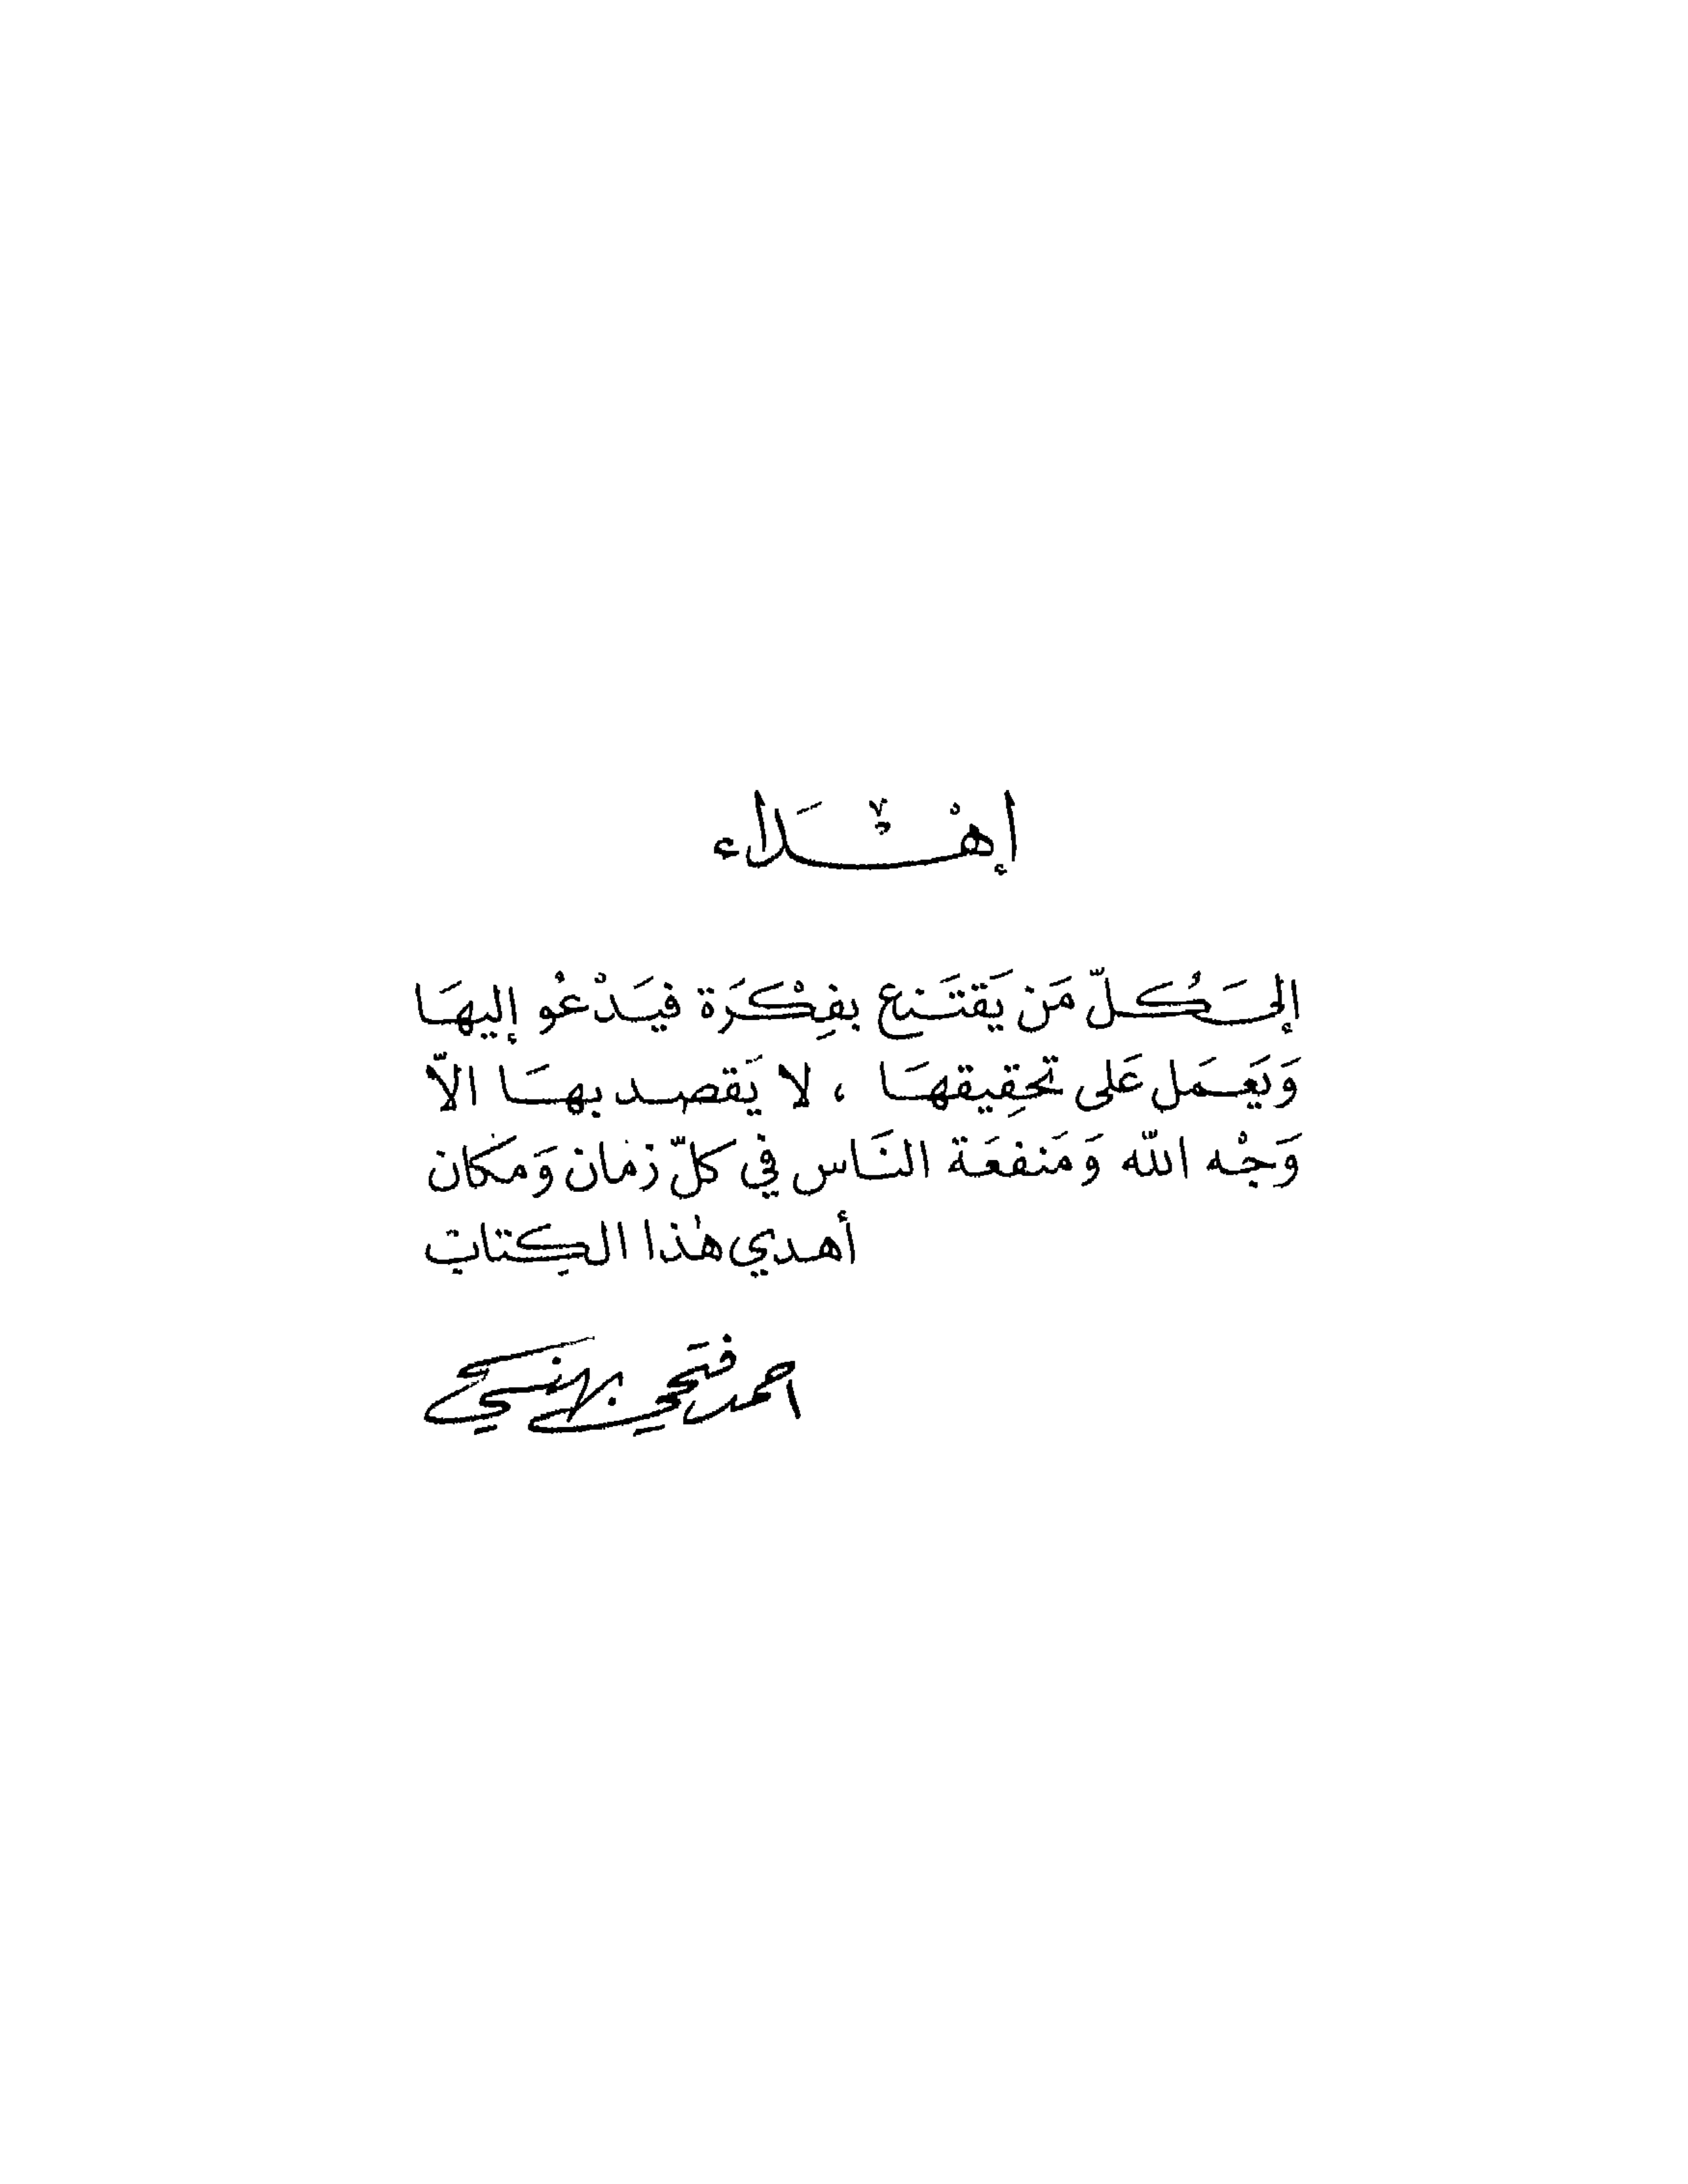 إهْـدَاء
إلىَ كُـلّ مَن يَقتَـنع بفِكْرَة فيَـدْعُو إليهَا
وَيَعـمَل عَلى تحقِيقهَـا ، لا يَقصـد بهـَا الاّ
وَجْه اللّه وَمَنفعَة النَاس في كلّ زمَان وَمَكان
أهـدي هٰذا الكِتابْ
احمد فتحي بهنسي